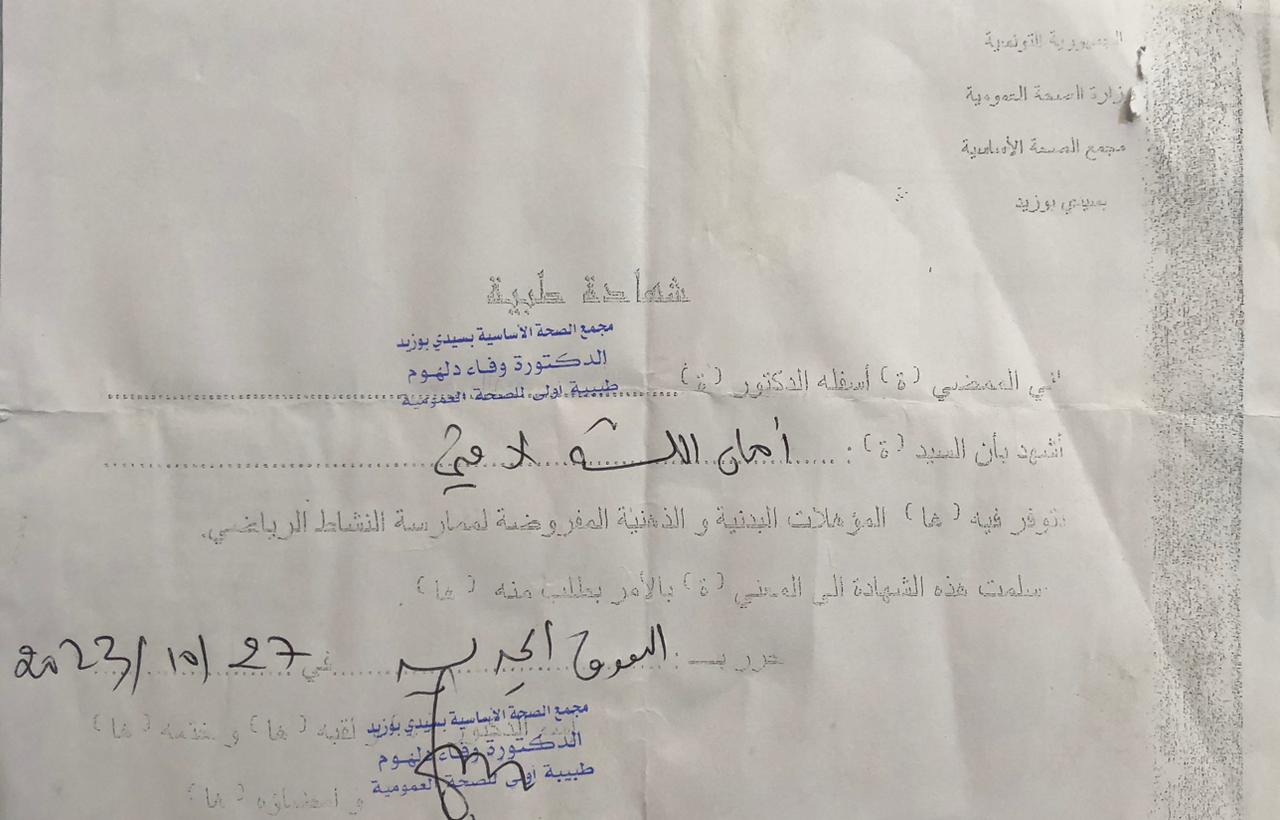 الجمهورية التونسية
وزارة الصحة العمومية
مجمع الصحة الأساسية
بسيدي بوزيد
شهادة طبية
مجمع الصحة الأساسية بسيدي بوزيد
الدكتورة وفاء دلهوم
طبيبة أولى للصحة العمومية
اني الممضي (ة) أسفله الدكتور (ة)
أشهد بأن السيد (ة) : أمان الله لافي
تتوفر فيه (ها) المؤهلات البدنية و الذهنية المفروضة لممارسة النشاط الرياضي.
سلمت هذه الشهادة الى المعني (ة) بالأمر بطلب منه (ها) .
حرر بـ : في 27/10/2023
مجمع الصحة الأساسية بسيدي بوزيد
الدكتورة وفاء دلهوم
طبيبة أولى للصحة العمومية
اسم الدكتور و لقبه (ها) و ختمه (ها)
و امضاؤه (ها)